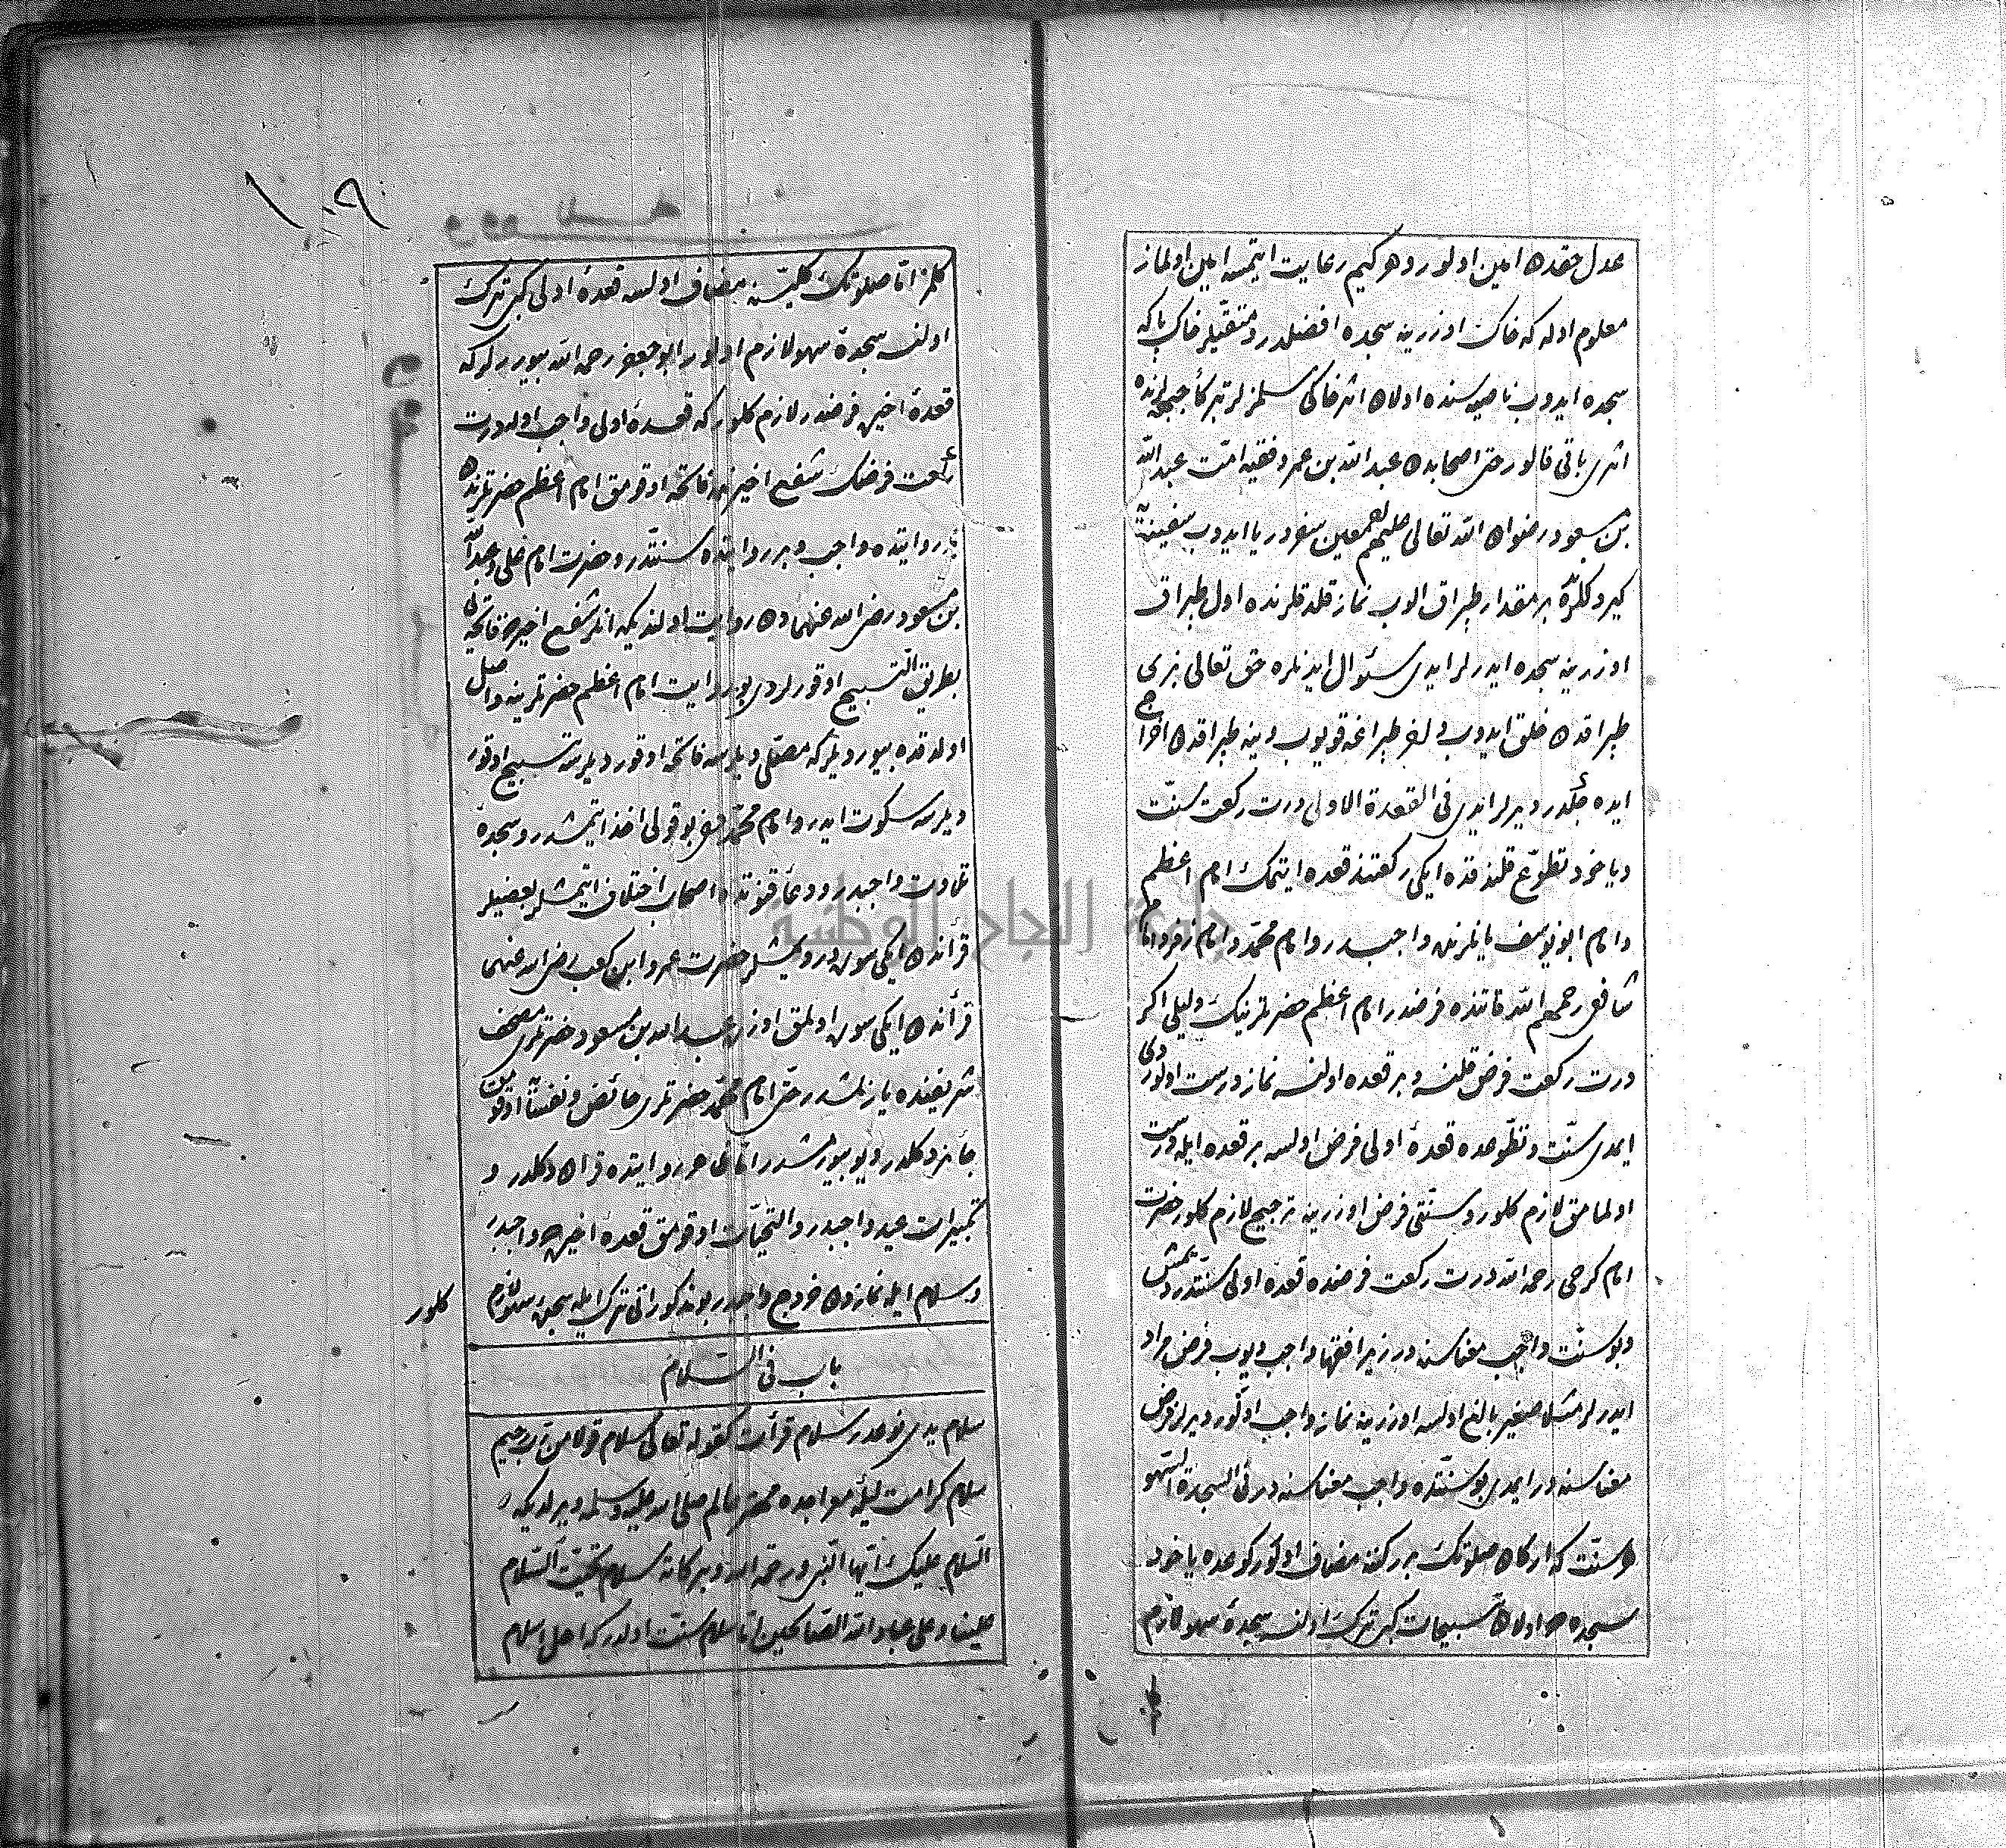 عدل حقده امين اولور و هر كيم رعايت ايتمسه امين اولماز
معلوم اوله كه خاك اوزرينه سجده افضلدر و متقيلر خاك پاكه
سجده ايدوب ناصيه سنده اولان اثر خاكى سلمزلر تبركاً جبهه لرنده
اثرى باقى قالور حتى اصحابدن عبد الله بن عمر و فقيه امت عبد الله
بن مسعود رضوان الله تعالى عليهم اجمعين سفر دريا ايدوب سفينه يه
كيردكلرنده بر مقدار طپراق الوب نماز قلدقلرنده اول طپراق
اوزرينه سجده ايدرلر ايدى سئوال ايدنلره حق تعالى بزى
طپراقدن خلق ايدوب و ينه طپراغه قويوب و ينه طپراقدن اخراج
ايده جكدر ديرلر ايدى فى القعدة الاولى درت ركعت سنت
و ياخود تطوع قلندقده ايكى ركعتنده قعده ايتمك امام اعظم
و امام ابو يوسف ياننده واجبدر و امام محمد و امام زفر و امام
شافعى رحمهم الله قاتنده فرضدر امام اعظم حضرتلرينك دليلى اكر
درت ركعت فرض قلنسه و بر قعده اولنسه نماز درست اولوردى
ايمدى سنت و تطوعده قعدهٔ اولى فرض اولسه بر قعده ايله درست
اولمامق لازم كلور و سنتى فرض اوزرينه ترجيح لازم كلور حضرت
امام كرخى رحمه الله درت ركعت فرضده قعدهٔ اولى سنتدر ديمش
و بو سنت واجب معناسنه در زيرا فقها واجب ديوب فرض مراد
ايدرلر مثلا صغير بالغ اولسه اوزرينه نماز واجب اولور ديرلر فرض
معناسنه در ايمدى بو سنتده واجب معناسنه در فى السجدة السهو
هر سنت كه اركان صلوتك بر ركننه مضاف اولور ركوعده ياخود
سجده ده اولان تسبيحات كبى ترك اولنسه سجدهٔ سهو لازم
١٠٩
كلمز اما صلوتك كليتنه مضاف اولسه قعدهٔ اولى كبى ترك
اولنسه سجدهٔ سهو لازم اولور ابو جعفر رحمه الله بيوررلر كه
قعدهٔ اخيره فرضدر لازم كلور كه قعدهٔ اولى واجب اوله درت
ركعت فرضك شفع اخيرنده فاتحه اوقومق امام اعظم حضرتلرندن
بر روايتده واجب و بر روايتده سنتدر و حضرت امام على و عبد الله
بن مسعود رضى الله عنهمادن روايت اولنديكه انلر شفع اخيرده فاتحه يى
بطريق التسبيح اوقورلردى بو روايت امام اعظم حضرتلرينه واصل
اولدقده بيورديلر كه مصلى ديلرسه فاتحه اوقور ديلرسه تسبيح اوقور
ديلرسه سكوت ايدر و امام محمد دخى بو قولى اخذ ايتمشدر و سجدهٔ
تلاوت واجبدر و دعاء قنوتده اصحاب اختلاف ايتمشلر بعضيلر
قرآندن ايكى سوره در ديمشلر حضرت عمر و ابن كعب رضى الله عنهما
قرآندن ايكى سوره اولمق اوزره عبد الله بن مسعود حضرتلرى مصحف
شريفنده يازلمشدر حتى امام محمد حضرتلرى حائض و نفسا اوقومق
جائز دكلدر ديو بيورمشدر اما ظاهر روايتده قرآن دكلدر و
تكبيرات عيد واجبدر و التحيات اوقومق قعدهٔ اخيره ده واجبدر
و سلام ايله نمازدن خروج واجبدر بو مذكوراتى ترك ايله سجدهٔ سهو لازم
كلور
باب فى السلام
سلام يدى نوعدر سلام قرأت كقوله تعالى سلام قولا من رب رحيم
سلام كرامت ليلهٔ معراجده فخر عالم صلى الله عليه و سلمه ديرلديكه
السلام عليك ايها النبى و رحمة الله و بركاته سلام تحيت السلام
علينا و على عباد الله الصالحين اما سلام سنت اولدر كه اهل اسلام
جامعة النجاح الوطنية